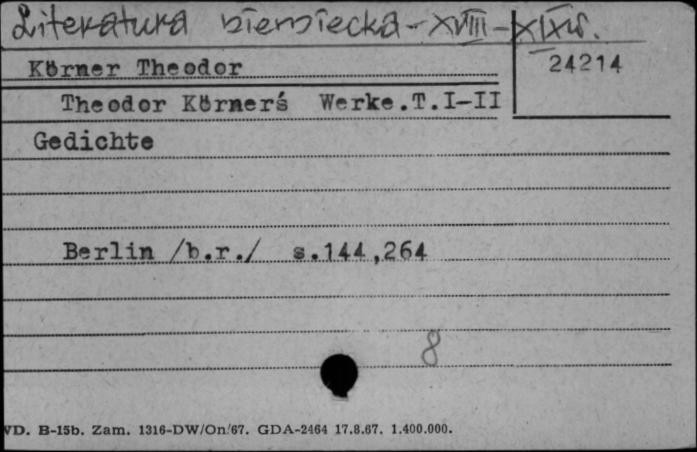 Literatura niemiecka - XVIII - XIX w.
Körner Theodor
24214
Theodor Körnerś Werke.T.I-II
Gedichte
Berlin /b.r./ s.144,264
8
VD. B-15b. Zam. 1316-DW/On/67. GDA-2464 17.8.67. 1.400.000.